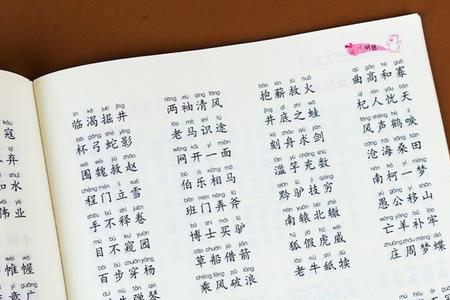 kòu
寇
弃
和水
伟业
帷幄
lín kě jué jǐng liǎng xiù qīng fēng bào xīn jiù huǒ qǔ gāo hè guǎ
临渴掘井 两袖清风 抱薪救火 曲高和寡
bēi gōng shé yǐng lǎo mǎ shí tú jǐng dǐ zhī wā qǐ rén yōu tiān
杯弓蛇影 老马识途 井底之蛙 杞人忧天
wéi wèi jiù zhào wǎng kāi yí miàn kè zhōu qiú jiàn fēng shēng hè lì
围魏救赵 网开一面 刻舟求剑 风声鹤唳
chéng mén lì xuě bó lè xiàng mǎ làn yú chōng shù cāng hǎi sāng tián
程门立雪 伯乐相马 滥竽充数 沧海桑田
shǒu bú shì juàn bān mén nòng fǔ qián lǘ jì qióng nán kē yí mèng
手不释卷 班门弄斧 黔驴技穷 南柯一梦
mù bù kuī yuán bó shì mǎi lǘ nán yuán běi zhé yú gōng yí shān
目不窥园 博士买驴 南辕北辙 愚公移山
bǎi bù chuān yáng cǎo chuán jiè jiàn hú jiǎ hǔ wēi wáng yáng bǔ láo
百步穿杨 草船借箭 狐假虎威 亡羊补牢
chéng fēng pò làng lǎo niú shì dú zhuāng zhōu mèng dié
乘风破浪 老牛舐犊 庄周梦蝶